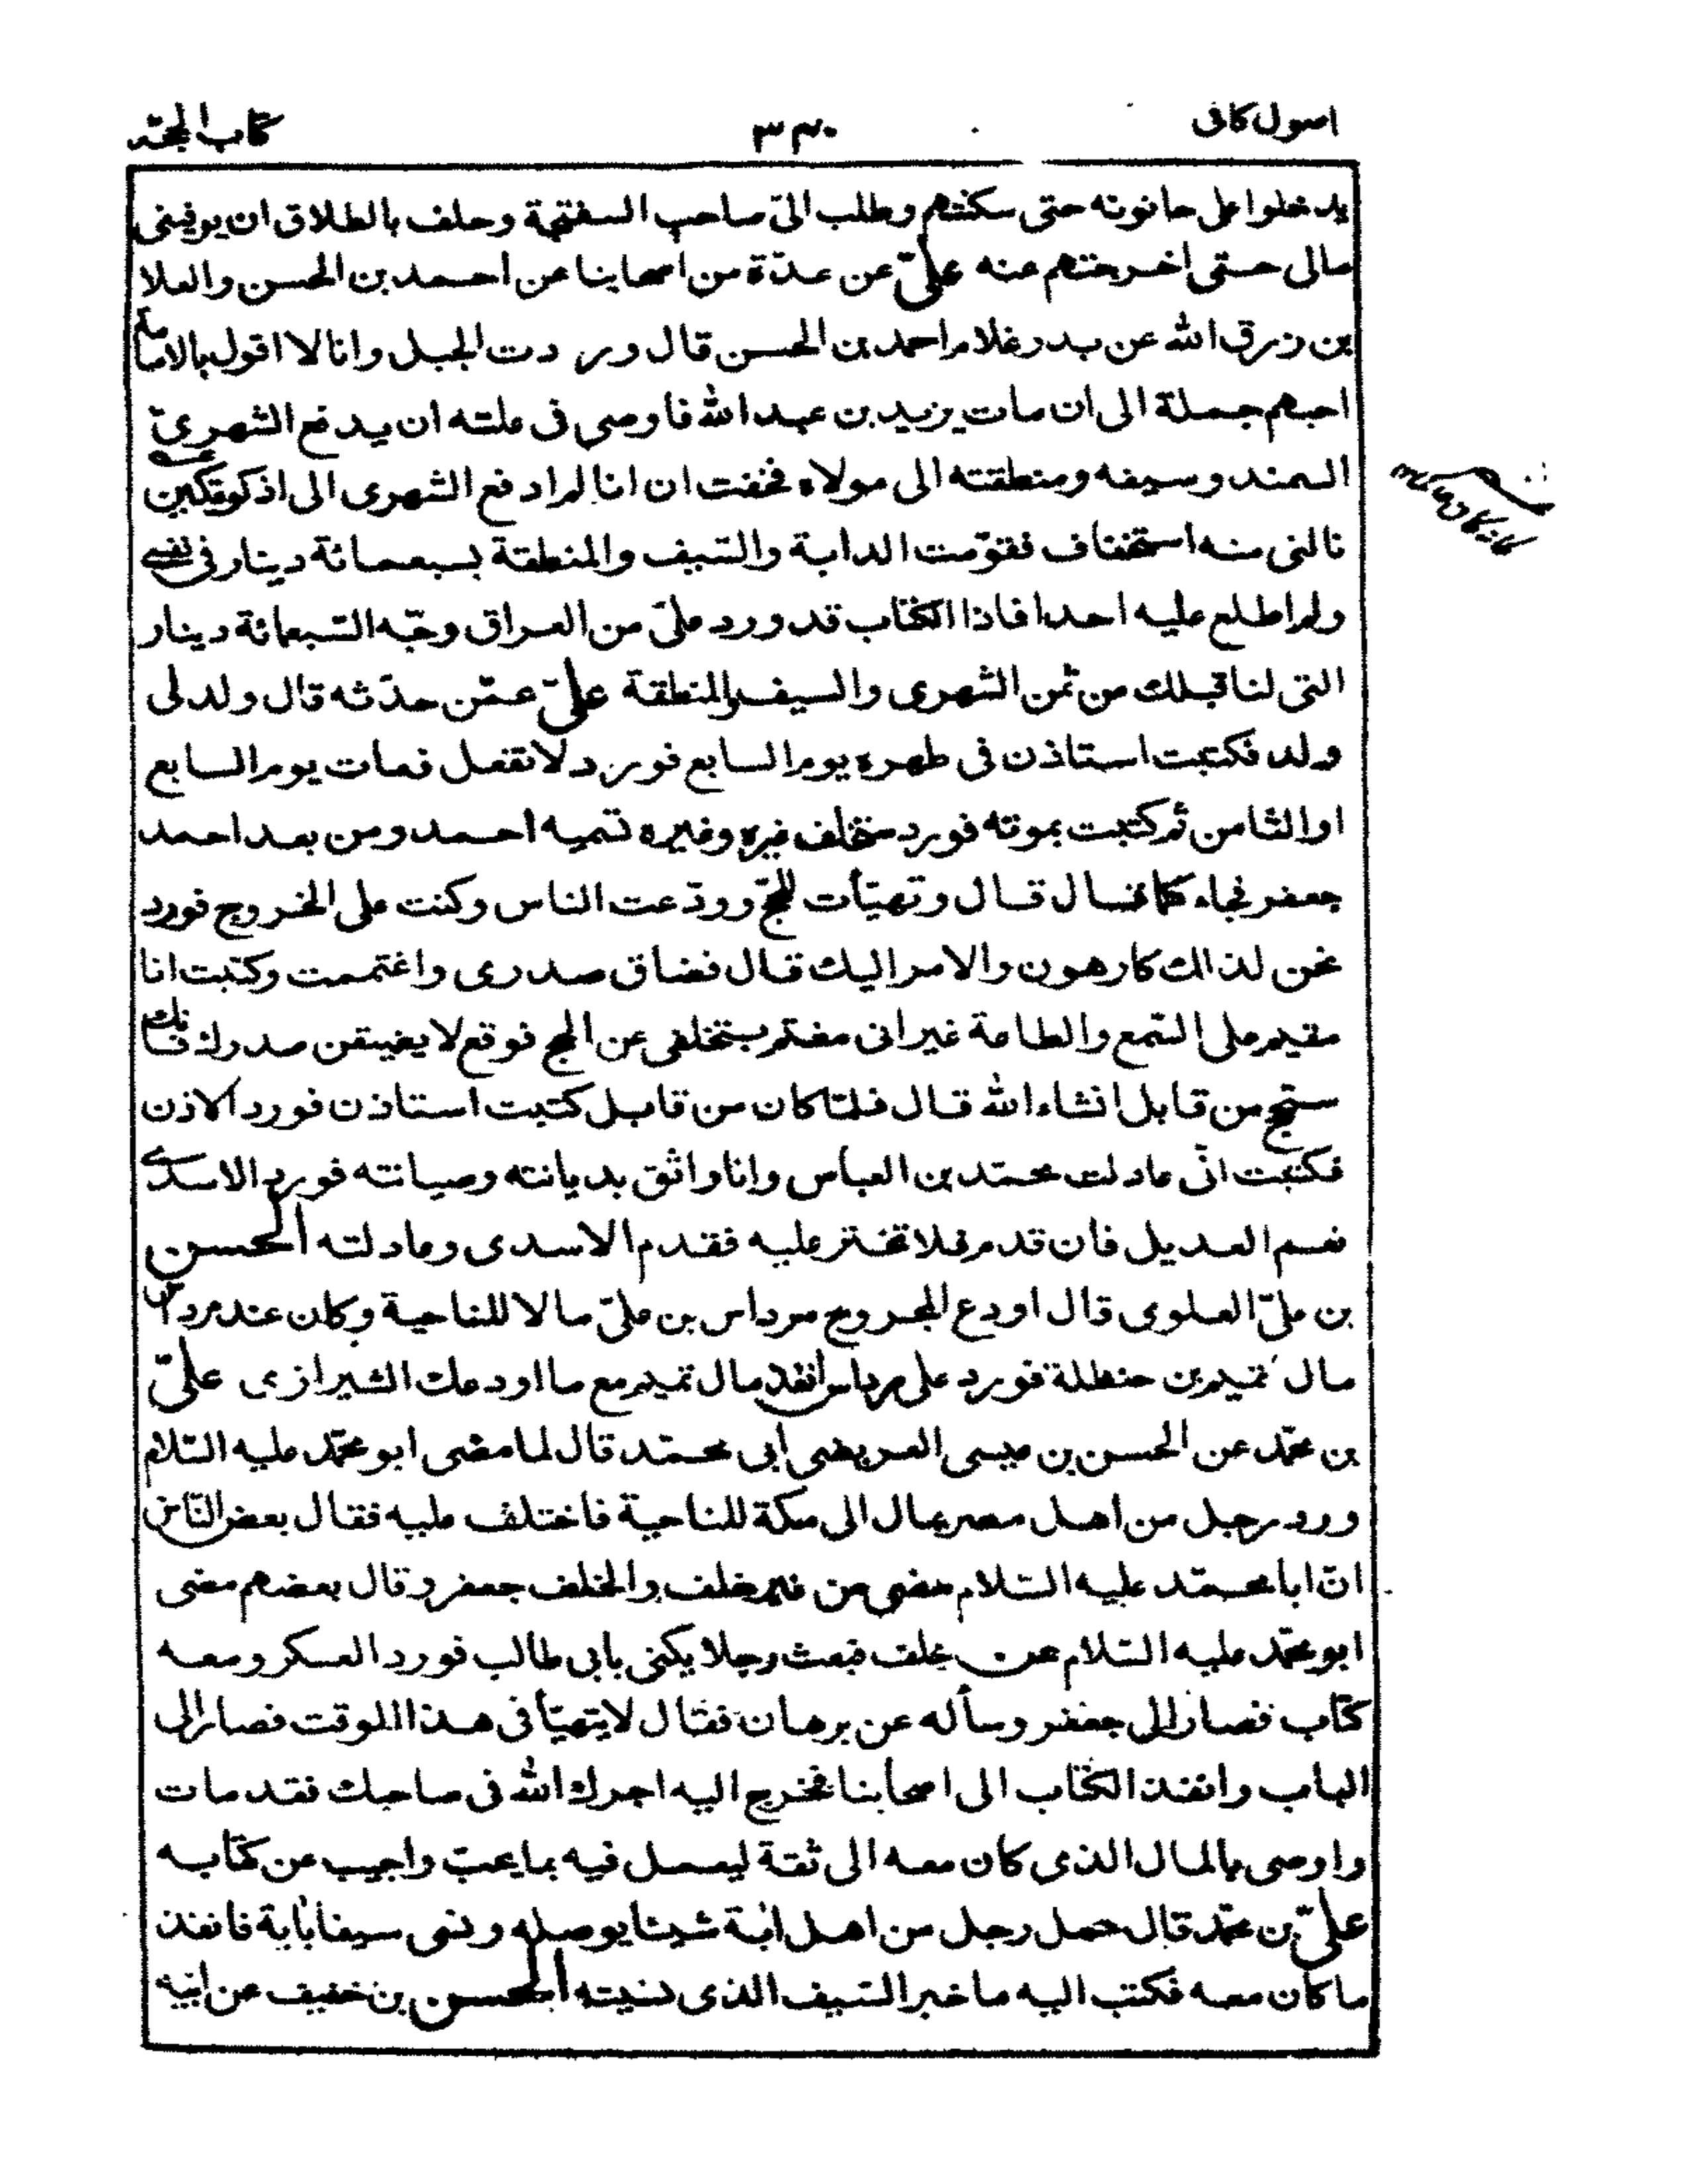 اصول کافی
۳۳۰
کتاب الحجّة
يدخلوا على حانوته حتى سكنتهم وطلب الىّ صاحب السفتجة وحلف بالطلاق ان يوفينى
مالى حتى اخرجتهم عنه علىّ عن عدّة من اصحابنا عن احمد بن الحسن والعلا
بن رزق الله عن بدر غلام احمد بن الحسن قال وردت الجبل وانا لا اقول بالامامة
احبهم جملة الى ان مات يزيد بن عبد الله فاوصى فى علته ان يدفع الشهرىّ
السمند وسيفه ومنطقته الى مولاه فخفت ان انا لم ادفع الشهرى الى اذكوتكين
نالنى منه استخفاف فقوّمت الدابة والسّيف والمنطقة بسبعمائة دينار فى نفسى
ولم اطلع عليه احدا فاذا الكتاب قد ورد علىّ من العراق وجّه السّبعمائة دينار
التى لنا قبلك من ثمن الشهرى والسيف والمنطقة علىّ عمّن حدّثه قال ولد لى
ولد فكتبت استاذن فى طهره يوم السابع فورد لا تفعل فمات يوم السابع
او الثامن ثم كتبت بموته فورد ستخلف غيره وغيره تسميه احمد ومن بعد احمد
جعفر فجاء كما قال قال وتهيّأت للحجّ وودّعت الناس وكنت على الخروج فورد
نحن لذلك كارهون والامر اليك قال فضاق صدرى واغتممت وكتبت انا
مقيم على السّمع والطاعة غير انى مغتم بتخلفى عن الحج فوقع لا يضيقن صدرك فانك
ستحج من قابل انشاء الله قال فلمّا كان من قابل كتبت استاذن فورد الاذن
فكتبت انّى عادلت محمّد بن العباس وانا واثق بديانته وصيانته فورد الاسدى
نعم العديل فان قدم فلا تختر عليه فقدم الاسدى وعادلته الحسن
بن علىّ العلوى قال اودع المجروح مرداس بن علىّ مالا للناحية وكان عند مرداس
مال تميم بن حنظلة فورد على مرداس انفذ مال تميم مع ما اودعك الشيرازى علىّ
بن محمّد عن الحسن بن عيسى العريضى ابى محمّد قال لما مضى ابو محمّد عليه السّلام
ورد رجل من اهل مصر بمال الى مكة للناحية فاختلف عليه فقال بعض النّاس
انّ ابا محمّد عليه السّلام مضى من غير خلف والخلف جعفر وقال بعضهم مضى
ابو محمّد عليه السّلام عن خلف فبعث رجلا يكنى بابى طالب فورد العسكر ومعه
كتاب فصار الى جعفر وسأله عن برهان فقال لا يتهيّأ فى هذا اللوقت فصار الى
الباب وانفذ الكتاب الى اصحابنا فخرج اليه اجرك الله فى صاحبك فقد مات
واوصى بالمال الذى كان معه الى ثقة ليعمل فيه بما يحبّ واجيب عن كتابه
علىّ بن محمّد قال حمل رجل من اهل ابة شيئا يوصله ونسى سيفا بأبة فانفذ
ما كان معه فكتب اليه ما خبر السّيف الذى نسيته الحسن بن خفيف عن ابيه